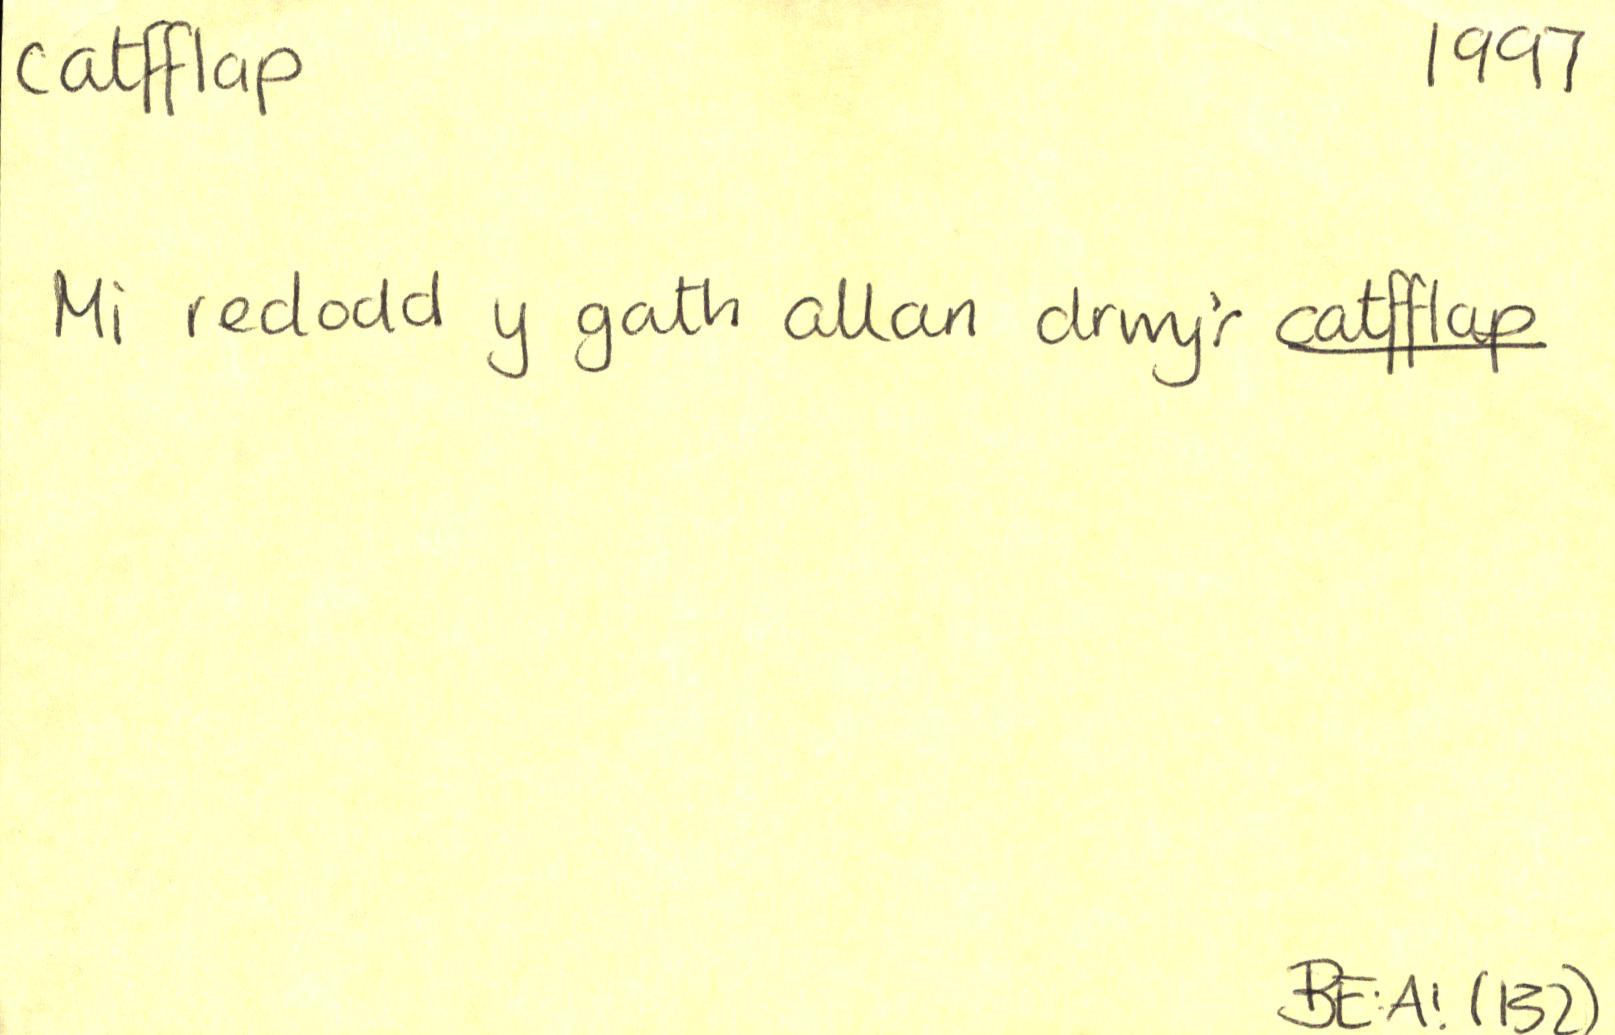 catfflap 1997
Mi redodd y gath allan drwy'r catfflap
BE:A! (132)